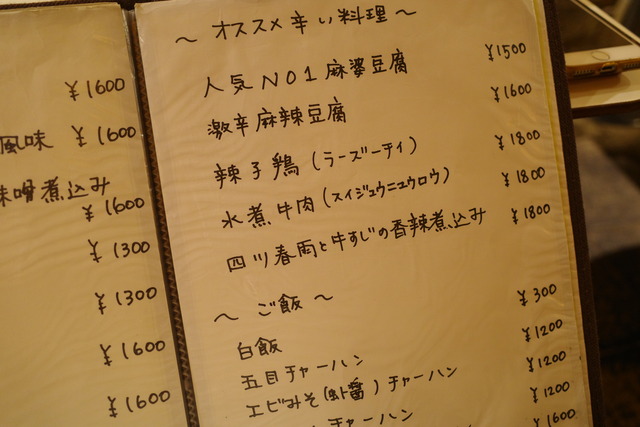 ¥1600
風味 ¥1600
味噌煮込み
¥1600
¥1300
¥1300
¥1600
¥1600
～ オススメ辛い料理 ～
人気NO1麻婆豆腐 ¥1500
激辛麻辣豆腐 ¥1600
辣子鶏(ラーズーティ) ¥1800
水煮牛肉(スイジュウニュウロウ) ¥1800
四ツ春雨と牛すじの香辣煮込み ¥1800
～ ご飯 ～
白飯 ¥300
五目チャーハン ¥1200
エビみそ(蝦醤)チャーハン ¥1200
チャーハン ¥1200
¥1600